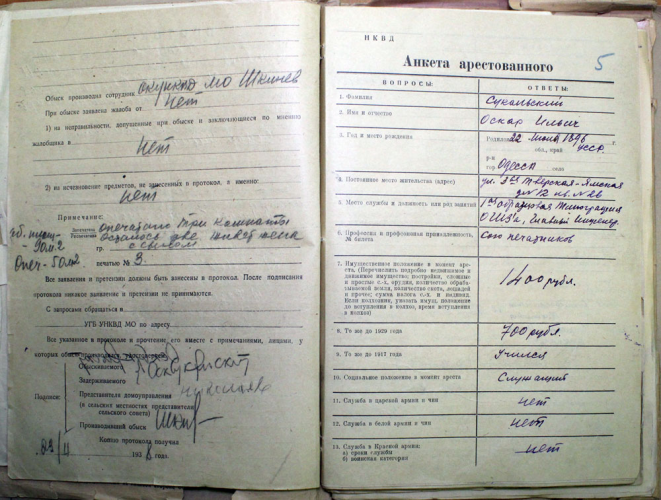 Обыск производил сотрудник
При обыске заявлена жалоба от нет
1) на неправильности, допущенные при обыске и заключающиеся по мнению
жалобщика в
нет
2) на исчезновение предметов, не занесенных в протокол, а именно:
нет
Примечание:
Опечатано три комнаты
печатью № 3.
Все заявления и претензии должны быть занесены в протокол. После подписания
протокола никакие заявления и претензии не принимаются.
С запросами обращаться в
УГБ УНКВД МО по адресу
Все указанное в протоколе и прочтение его вместе с примечаниями, лицами, у
которых обыск производился, удостоверяем
Обыскиваемого
Задерживаемого
Представителя домоуправления
(в сельских местностях представителя
сельского совета)
Подписи:
Производивший обыск
Копию протокола получил
193 8 года.
НКВД
5
Анкета арестованного
ВОПРОСЫ: ОТВЕТЫ:
1. Фамилия Сукальский
2. Имя и отчество Оскар Ильич
3. Год и место рождения Родился 22 июня 1896
обл., край УССР
р-н
гор. Одесса село
4. Постоянное место жительства (адрес) ул. 3ая Тверская-Ямская
д № 12 кв. № 26
5. Место службы и должность или род занятий 1ая Образцовая Типография
ОГИЗ'а, Главный Инженер.
6. Профессия и профсоюзная принадлежность, Союз печатников
№ билета
7. Имущественное положение в момент аре-
ста. (Перечислить подробно недвижимое и
движимое имущество: постройки, сложные
и простые с.-х. орудия, количество обраба-
тываемой земли, количество скота, лошадей
и прочее; сумма налога с.-х. и индивид.
Если колхозник, указать имущ. положение
до вступления в колхоз, время вступления
в колхоз)
1400 рубл.
8. То же до 1929 года 700 рубл.
9. То же до 1917 года Учился
10. Социальное положение в момент ареста Служащий
11. Служба в царской армии и чин нет
12. Служба в белой армии и чин нет
13. Служба в Красной армии: нет
а) сроки службы
б) воинская категория